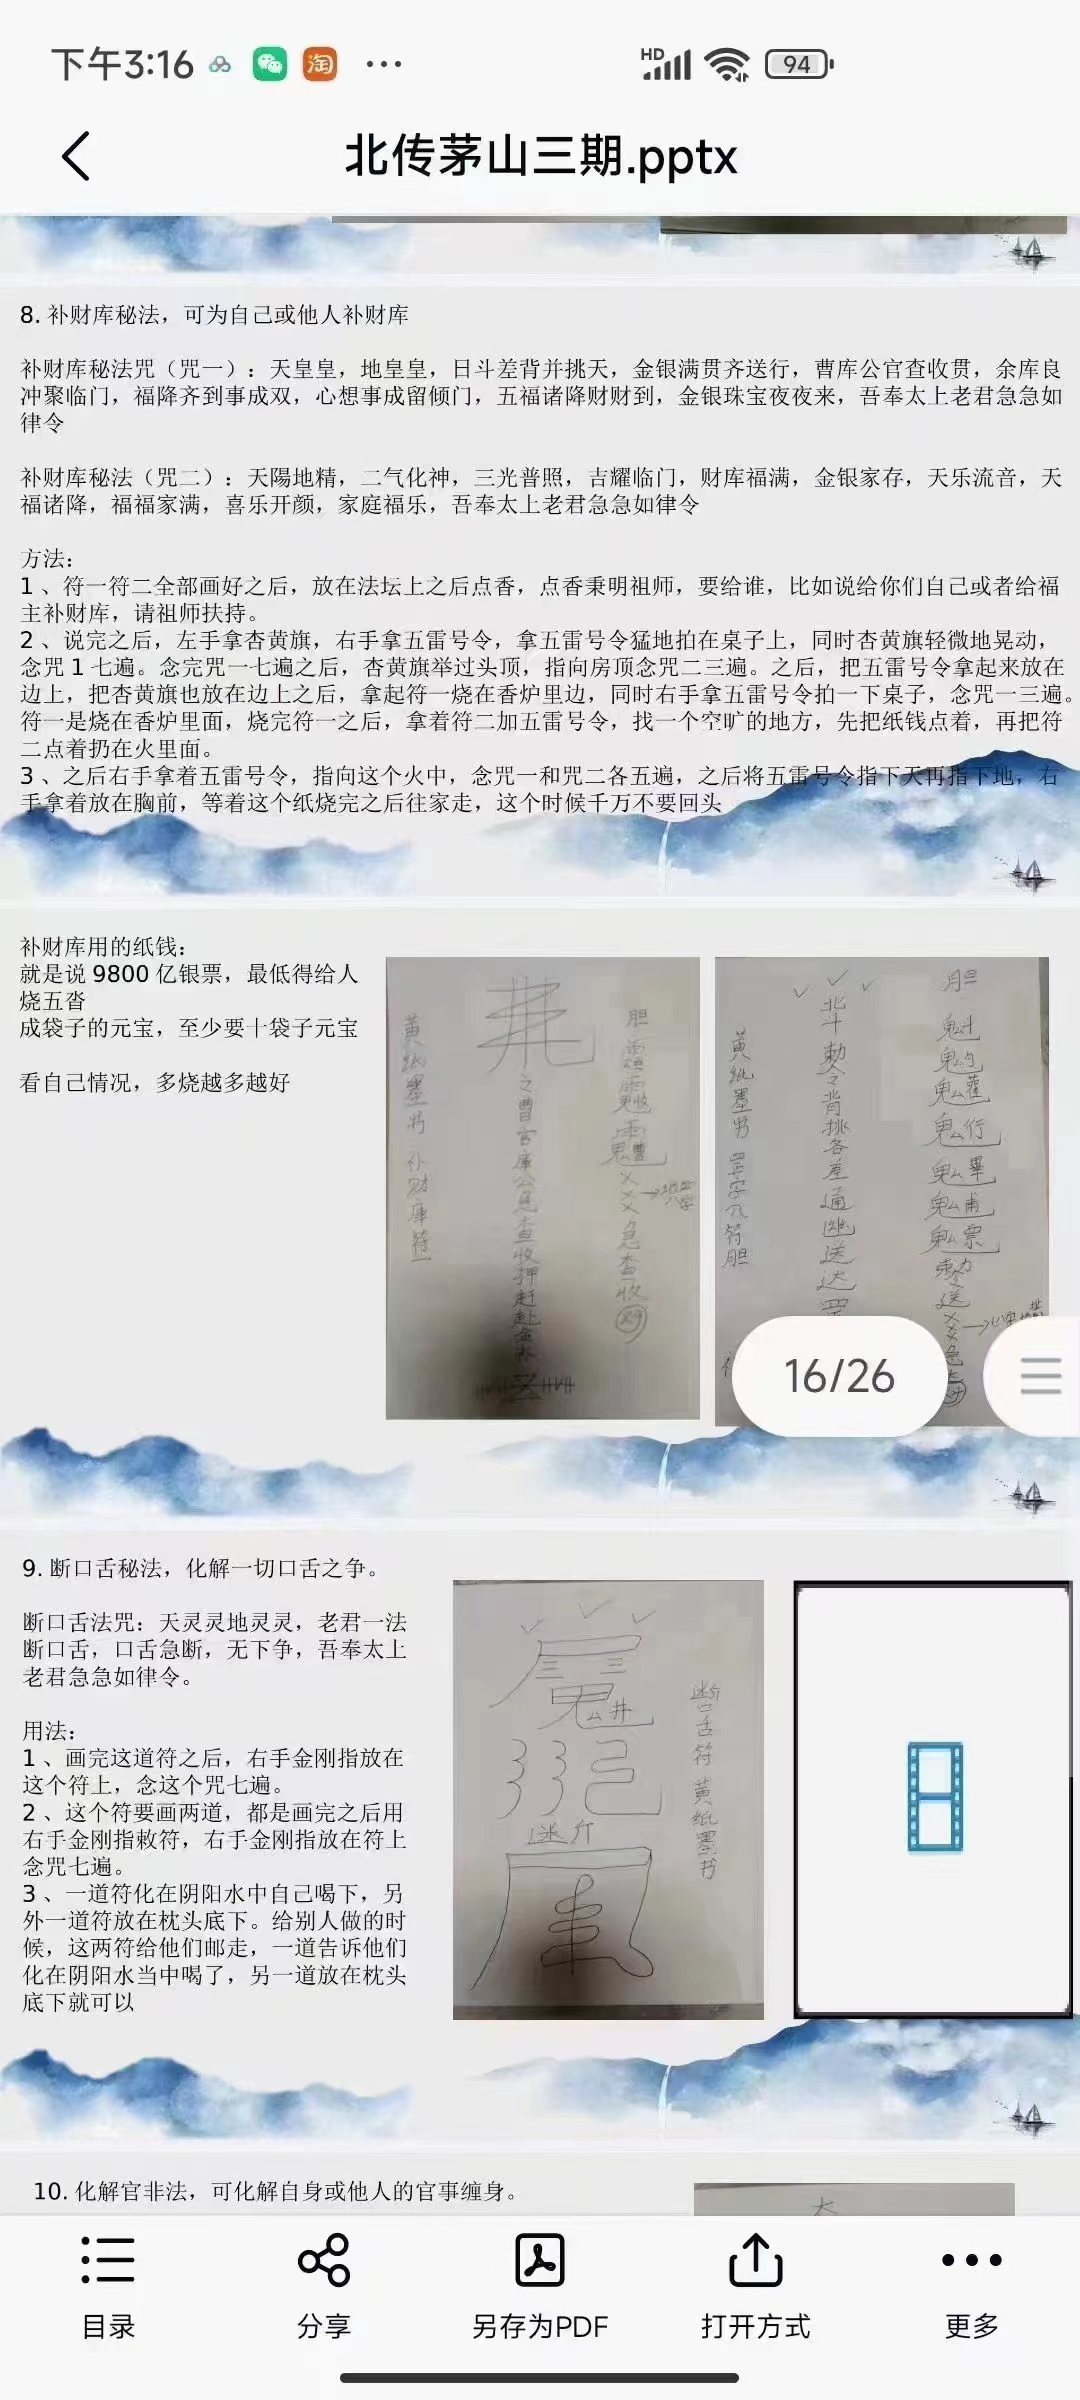 下午3:16
淘
HD
94
北传茅山三期.pptx
8. 补财库秘法，可为自己或他人补财库
补财库秘法咒（咒一）：天皇皇，地皇皇，日斗差背并挑天，金银满贯齐送行，曹库公官查收贯，余库良
冲聚临门，福降齐到事成双，心想事成留倾门，五福诸降财财到，金银珠宝夜夜来，吾奉太上老君急急如
律令
补财库秘法（咒二）：天陽地精，二气化神，三光普照，吉耀临门，财库福满，金银家存，天乐流音，天
福诸降，福福家满，喜乐开颜，家庭福乐，吾奉太上老君急急如律令
方法：
1 、符一符二全部画好之后，放在法坛上之后点香，点香秉明祖师，要给谁，比如说给你们自己或者给福
主补财库，请祖师扶持。
2 、说完之后，左手拿杏黄旗，右手拿五雷号令，拿五雷号令猛地拍在桌子上，同时杏黄旗轻微地晃动，
念咒 1 七遍。念完咒一七遍之后，杏黄旗举过头顶，指向房顶念咒二三遍。之后，把五雷号令拿起来放在
边上，把杏黄旗也放在边上之后，拿起符一烧在香炉里边，同时右手拿五雷号令拍一下桌子，念咒一三遍。
符一是烧在香炉里面，烧完符一之后，拿着符二加五雷号令，找一个空旷的地方，先把纸钱点着，再把符
二点着扔在火里面。
3 、之后右手拿着五雷号令，指向这个火中，念咒一和咒二各五遍，之后将五雷号令指下天再指下地，右
手拿着放在胸前，等着这个纸烧完之后往家走，这个时候千万不要回头
补财库用的纸钱：
就是说 9800 亿银票，最低得给人
烧五沓
成袋子的元宝，至少要十袋子元宝
看自己情况，多烧越多越好
黄纸墨书 补财库符一
之曹官库公急查收押赶赴金
胆
急查收
黄纸墨书
符胆
北斗敕令背挑各差通幽送达
胆
16/26
9. 断口舌秘法，化解一切口舌之争。
断口舌法咒：天灵灵地灵灵，老君一法
断口舌，口舌急断，无下争，吾奉太上
老君急急如律令。
用法：
1 、画完这道符之后，右手金刚指放在
这个符上，念这个咒七遍。
2 、这个符要画两道，都是画完之后用
右手金刚指敕符，右手金刚指放在符上
念咒七遍。
3 、一道符化在阴阳水中自己喝下，另
外一道符放在枕头底下。给别人做的时
候，这两符给他们邮走，一道告诉他们
化在阴阳水当中喝了，另一道放在枕头
底下就可以
舌符 黄纸墨书
10. 化解官非法，可化解自身或他人的官事缠身。
目录
分享
另存为PDF
打开方式
更多